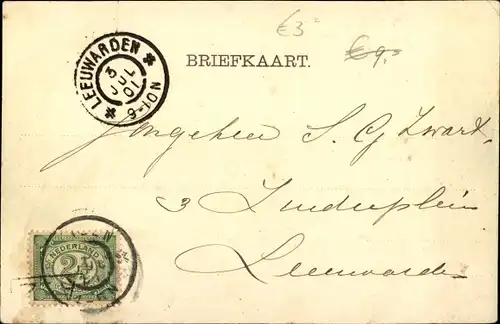 €3
€9,-
LEEUWARDEN
3
JUL
01
9-10N
BRIEFKAART.
Jongeheer S. G. Zwart.
3 Zuiderplein
Leeuwarden
NEDERLAND
2½